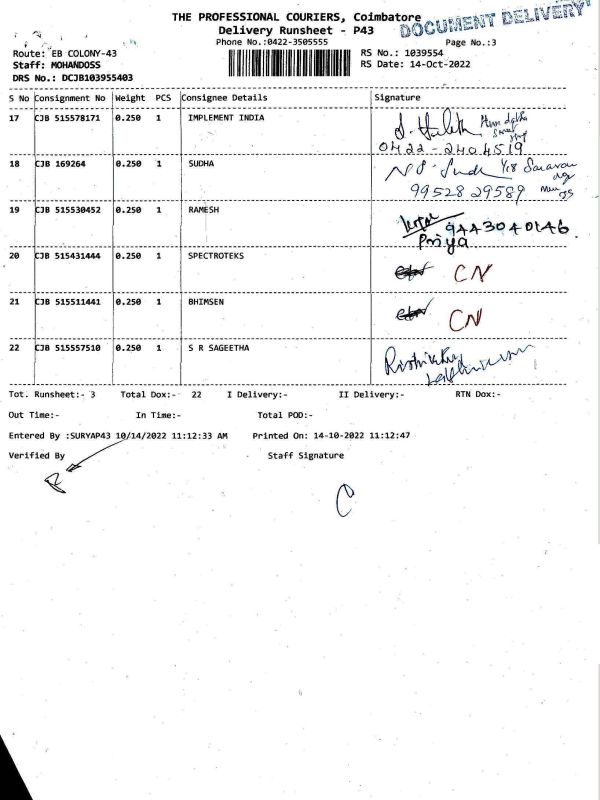 THE PROFESSIONAL COURIERS, Coimbatore
DOCUMENT DELIVERY
Delivery Runsheet - P43
Phone No.:0422-3505555
Page No.:3
Route: EB COLONY-43
RS No.: 1039554
Staff: MOHANDOSS
RS Date: 14-Oct-2022
DRS No.: DCJB103955403
S No Consignment No Weight PCS Consignee Details Signature
17 CJB 515578171 0.250 1 IMPLEMENT INDIA
0422-2404519
18 CJB 169264 0.250 1 SUDHA
99528 29589
19 CJB 515530452 0.250 1 RAMESH
9443040146
Priya
20 CJB 515431444 0.250 1 SPECTROTEKS CN
21 CJB 515511441 0.250 1 BHIMSEN CN
22 CJB 515557510 0.250 1 S R SAGEETHA
Tot. Runsheet:- 3 Total Dox:- 22 I Delivery:- II Delivery:- RTN Dox:-
Out Time:- In Time:- Total POD:-
Entered By :SURYAP43 10/14/2022 11:12:33 AM Printed On: 14-10-2022 11:12:47
Verified By Staff Signature